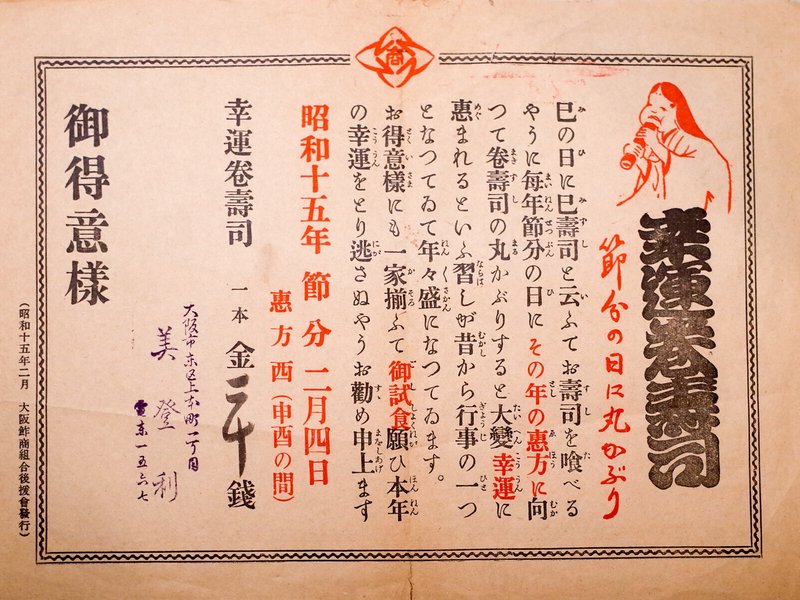 商
幸運巻壽司
節分の日に丸かぶり
巳の日に巳壽司と云ふてお壽司を喰べる
やうに毎年節分の日にその年の惠方に向
つて巻壽司の丸かぶりすると大變幸運に
惠まれるといふ習しが昔から行事の一つ
となつてゐて年々盛になつてゐます。
お得意樣にも一家揃ふて御試食願ひ本年
の幸運をとり逃さぬやうお勸め申上ます
昭和十五年 節分 二月四日
惠方西(申酉の間)
幸運卷壽司 一本 金二十錢
大阪市東区上本町二丁目
美登利
電東一五六七
御得意樣
(昭和十五年二月 大阪鮓商組合後援會發行)